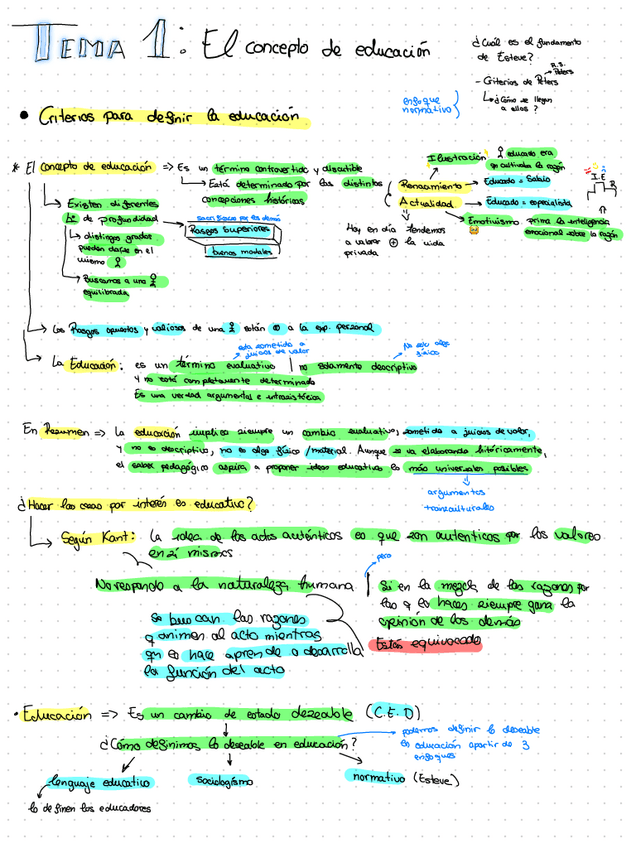 TEMA 1: El concepto de educación
¿Cuál es el fundamento
de Esteve?
R.S.
Peters
- Criterios de Peters
↳ ¿Cómo se llegan
a ellos?
enfoque
normativo
• Criterios para definir la educación
* El concepto de educación => Es un término controvertido y discutible
↳ Está determinado por las distintas
concepciones históricas
Ilustración: educado era
que cultivaba la razón
Renacimiento → Educado = Sabio
Actualidad → Educado = especialista
Emotivismo prima la inteligencia
emocional sobre la razón
I.E
R
Hoy en día tendemos
a valorar ⊕ la vida
privada
↳ Existen diferentes
de profundidad
sacrificarse por los demás
Rasgos superiores
buenos modales
↳ distingos grados
pueden darse en el
mismo
↳ Buscamos a una
equilibrada
↳ Los Rasgos opuestos y valiosos de una están a la exp. personal
esta sometida a
juicios de valor
No es algo
físico
↳ La Educación: es un término evaluativo | no estamento descriptivo
y no está completamente determinado
Es una verdad argumental e intrahistórica
En Resumen => La educación implica siempre un cambio evaluativo, sometida a juicios de valor,
y no es descriptivo, no es algo físico/material. Aunque se va elaborando históricamente,
el saber pedagógico aspira a proponer ideas educativas lo más universales posibles
↓
argumentos
transculturales
¿Hacer las cosas por interés es educativo?
↳ Según Kant: la idea de los actos auténticos es que son autenticos por los valores
en sí mismos
No respondo a la naturaleza humana
pero
Si en la mezcla de las razones por
las q lo haces siempre gana la
opinión de los demás
Estás equivocado
Se buscan las razones
q animen al acto mientras
que se hace aprende a desarrolla
la función del acto
• Educación => Es un cambio de estado deseable (C.E.D)
¿Cómo definimos lo deseable en educación?
podemos definir lo deseable
en educación apartir de 3
enfoques
lenguaje educativo
sociologismo
normativo (Esteve)
lo definen los educadores